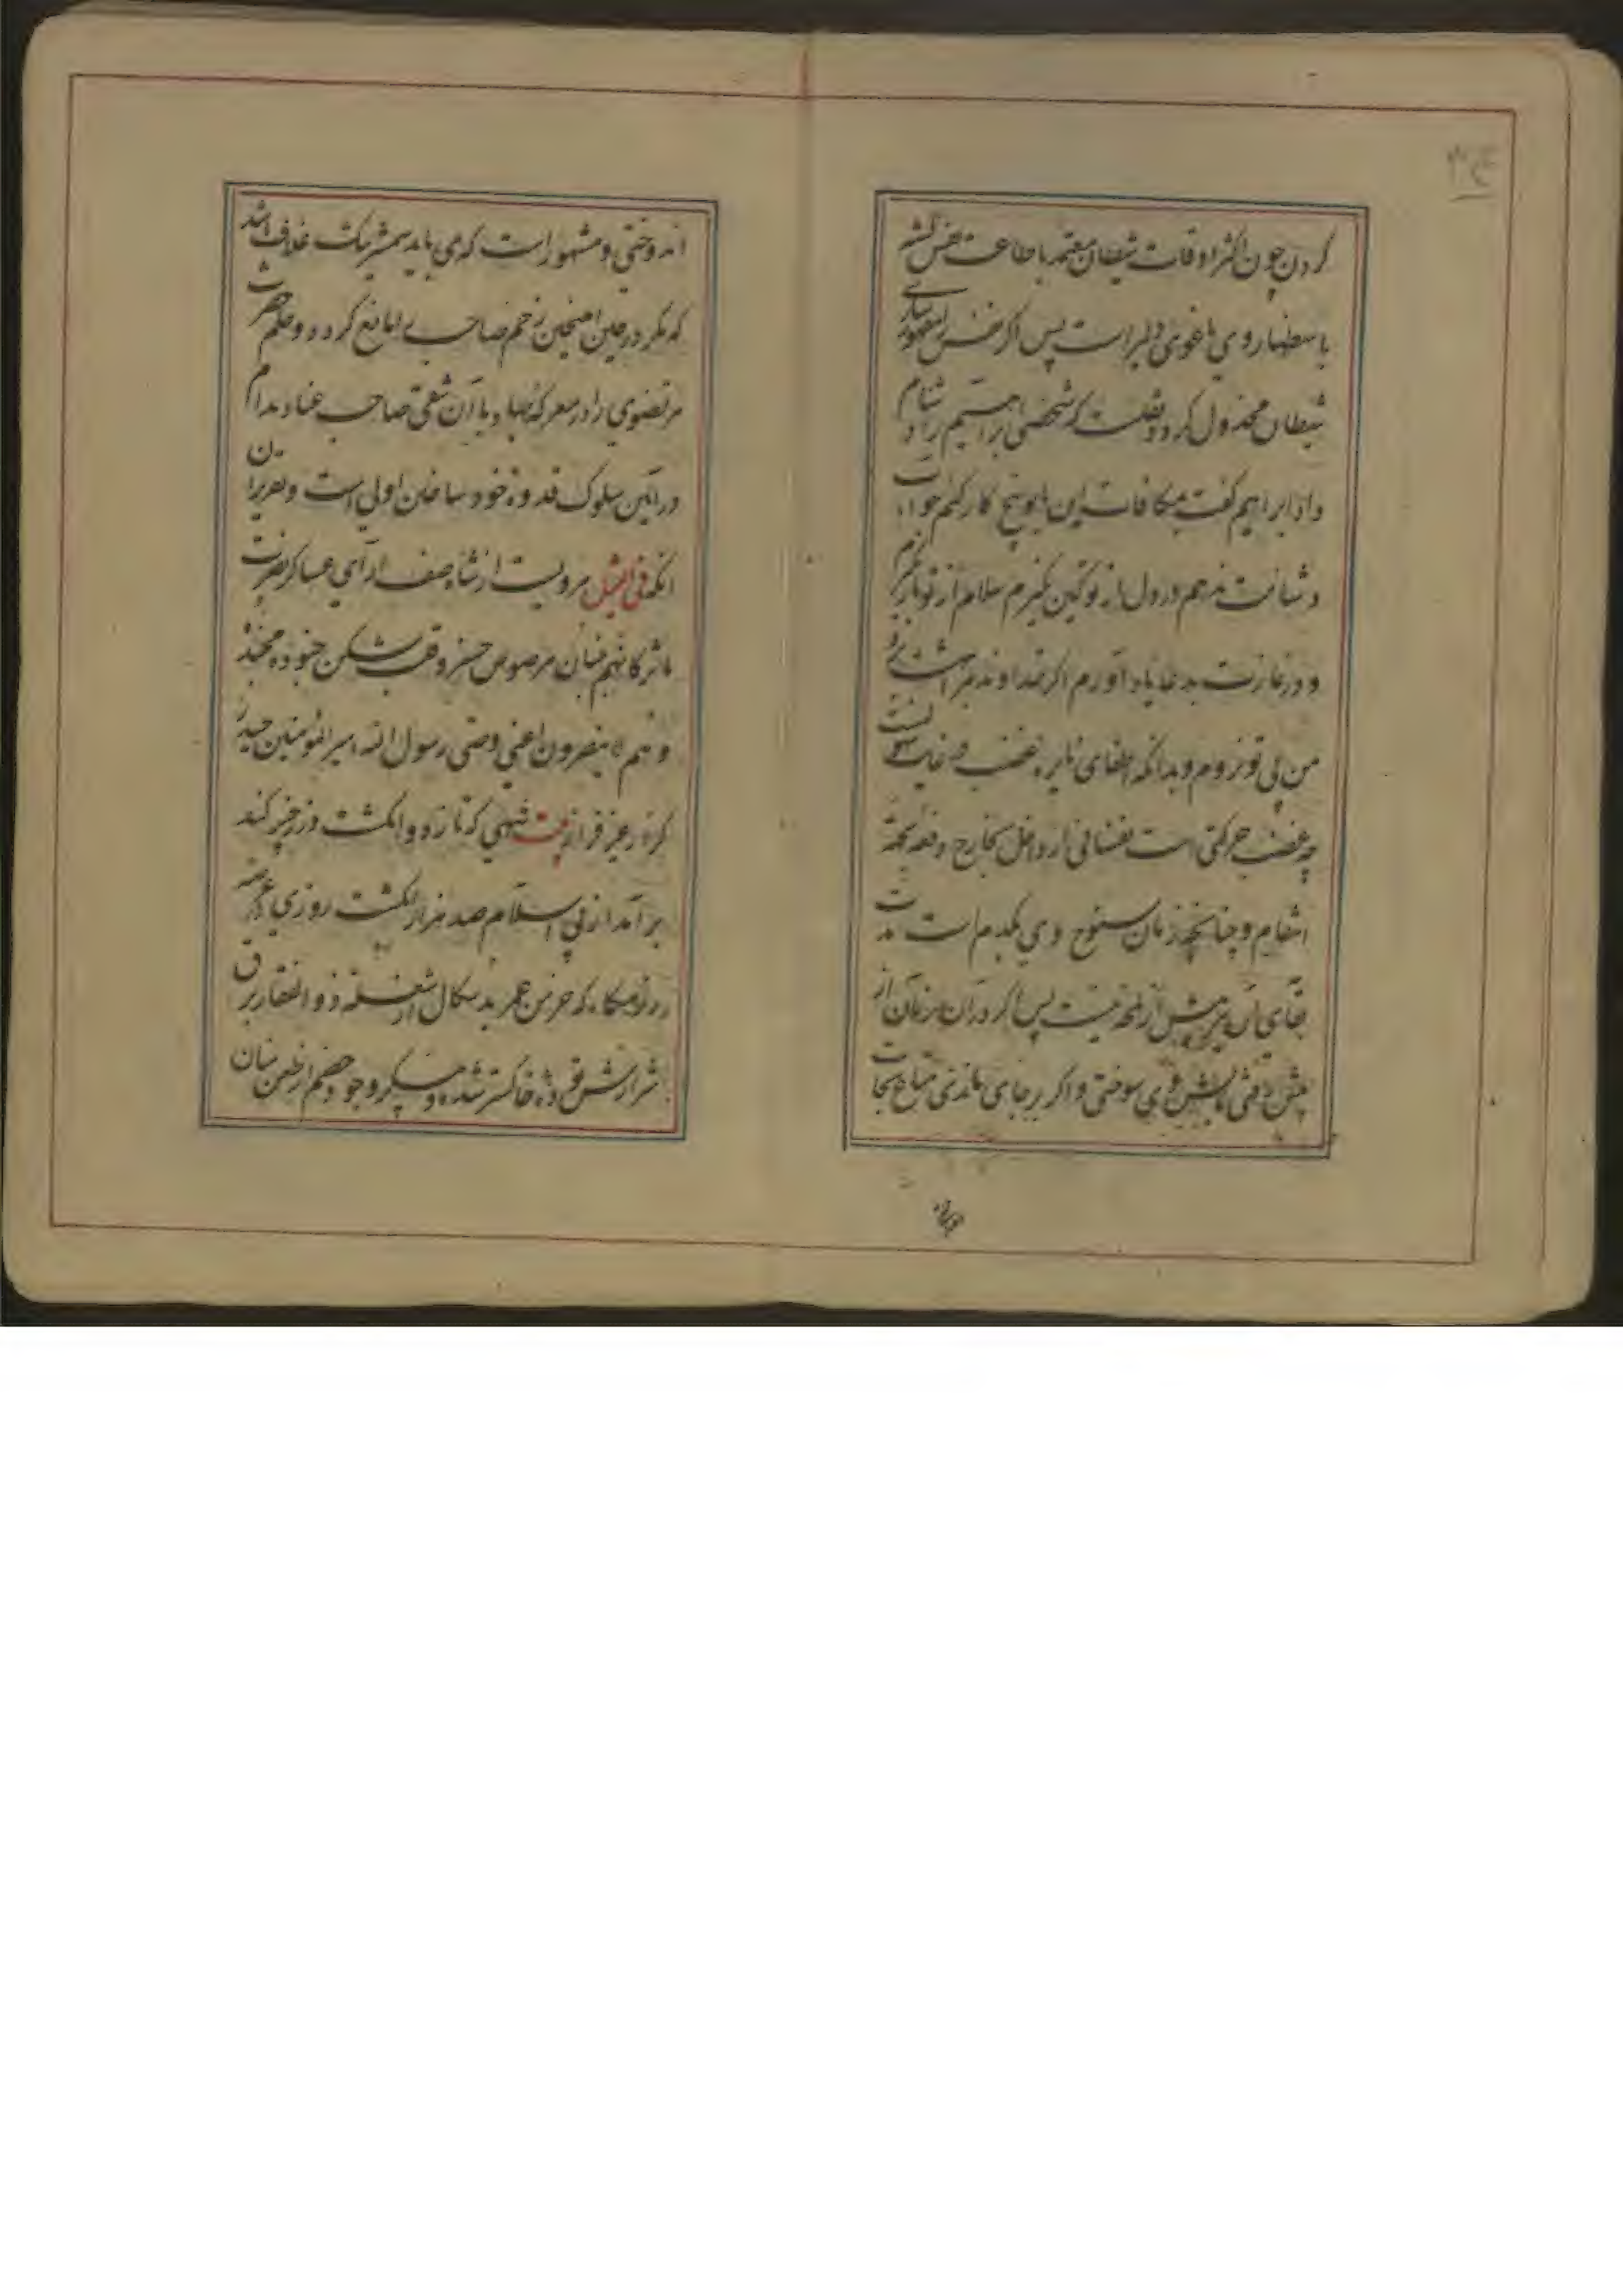 کردن چون اکثر اوقات شیطان معتمد باطاعت نفس گشته
باستظهار وی باغوای دلیر است پس اگر نفس را مقهور سازی
شیطان مخذول گردد نقلست که شخصی ابراهیم را دشنام
داد ابراهیم گفت مکافات این با تو پنج کار کنم جوابت
و شنامت ندهم در دل از تو کین نگیرم سلام از تو باز نگیرم
و در نمازت بدعا یاد آورم اگر خداوند مرا
من بی تو نروم و بدانکه اطفای نایره غضب در غایت
چه غضب حرکتی است نفسانی از داخل بخارج دفعه بجهة
انتقام و چنانچه زمان سنوح وی یکدم است مدت
بقای آن نیز بیش از لمحه نیست پس اگر در آن زمان از
پیش رفتی بآتش وی سوختی و اگر بر جای ماندی متاع نجات
اندوختی و مشهور است که می باید شمشیر یک غلاف باشد
که مگر در حین اینچنین زخم صاحب را مانع گردد و حلم حضرت
مرتضوی را در معرکه جهاد با آن شقی صاحب عناد مدام
در آئین سلوک قدوه خود ساختن اولی است و تقریر آن
آنکه فی المثل مرویست از شاه صف آرای عساکر نصرت
مآثر کانهم بنیان مرصوص حیدر و قلب شکن جنود
و هم لا ینصرون اعنی وصی رسول الله امیر المؤمنین حیدر
کرار غیر فرار بیت شهی که تا زد دو انگشت در در خیبر کند
بر آمد از پی اسلام صد هزار انگشت روزی در عرصه
رزمگاه که خرمن عمر بدسکال از شعله ذو الفقار برق
شرارش توده خاکستر شده و پیکر وجود خصم از طعن سنان